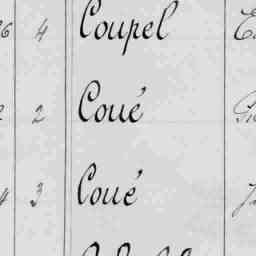 26 4 Coupel
2 2 Coué
4 3 Coué